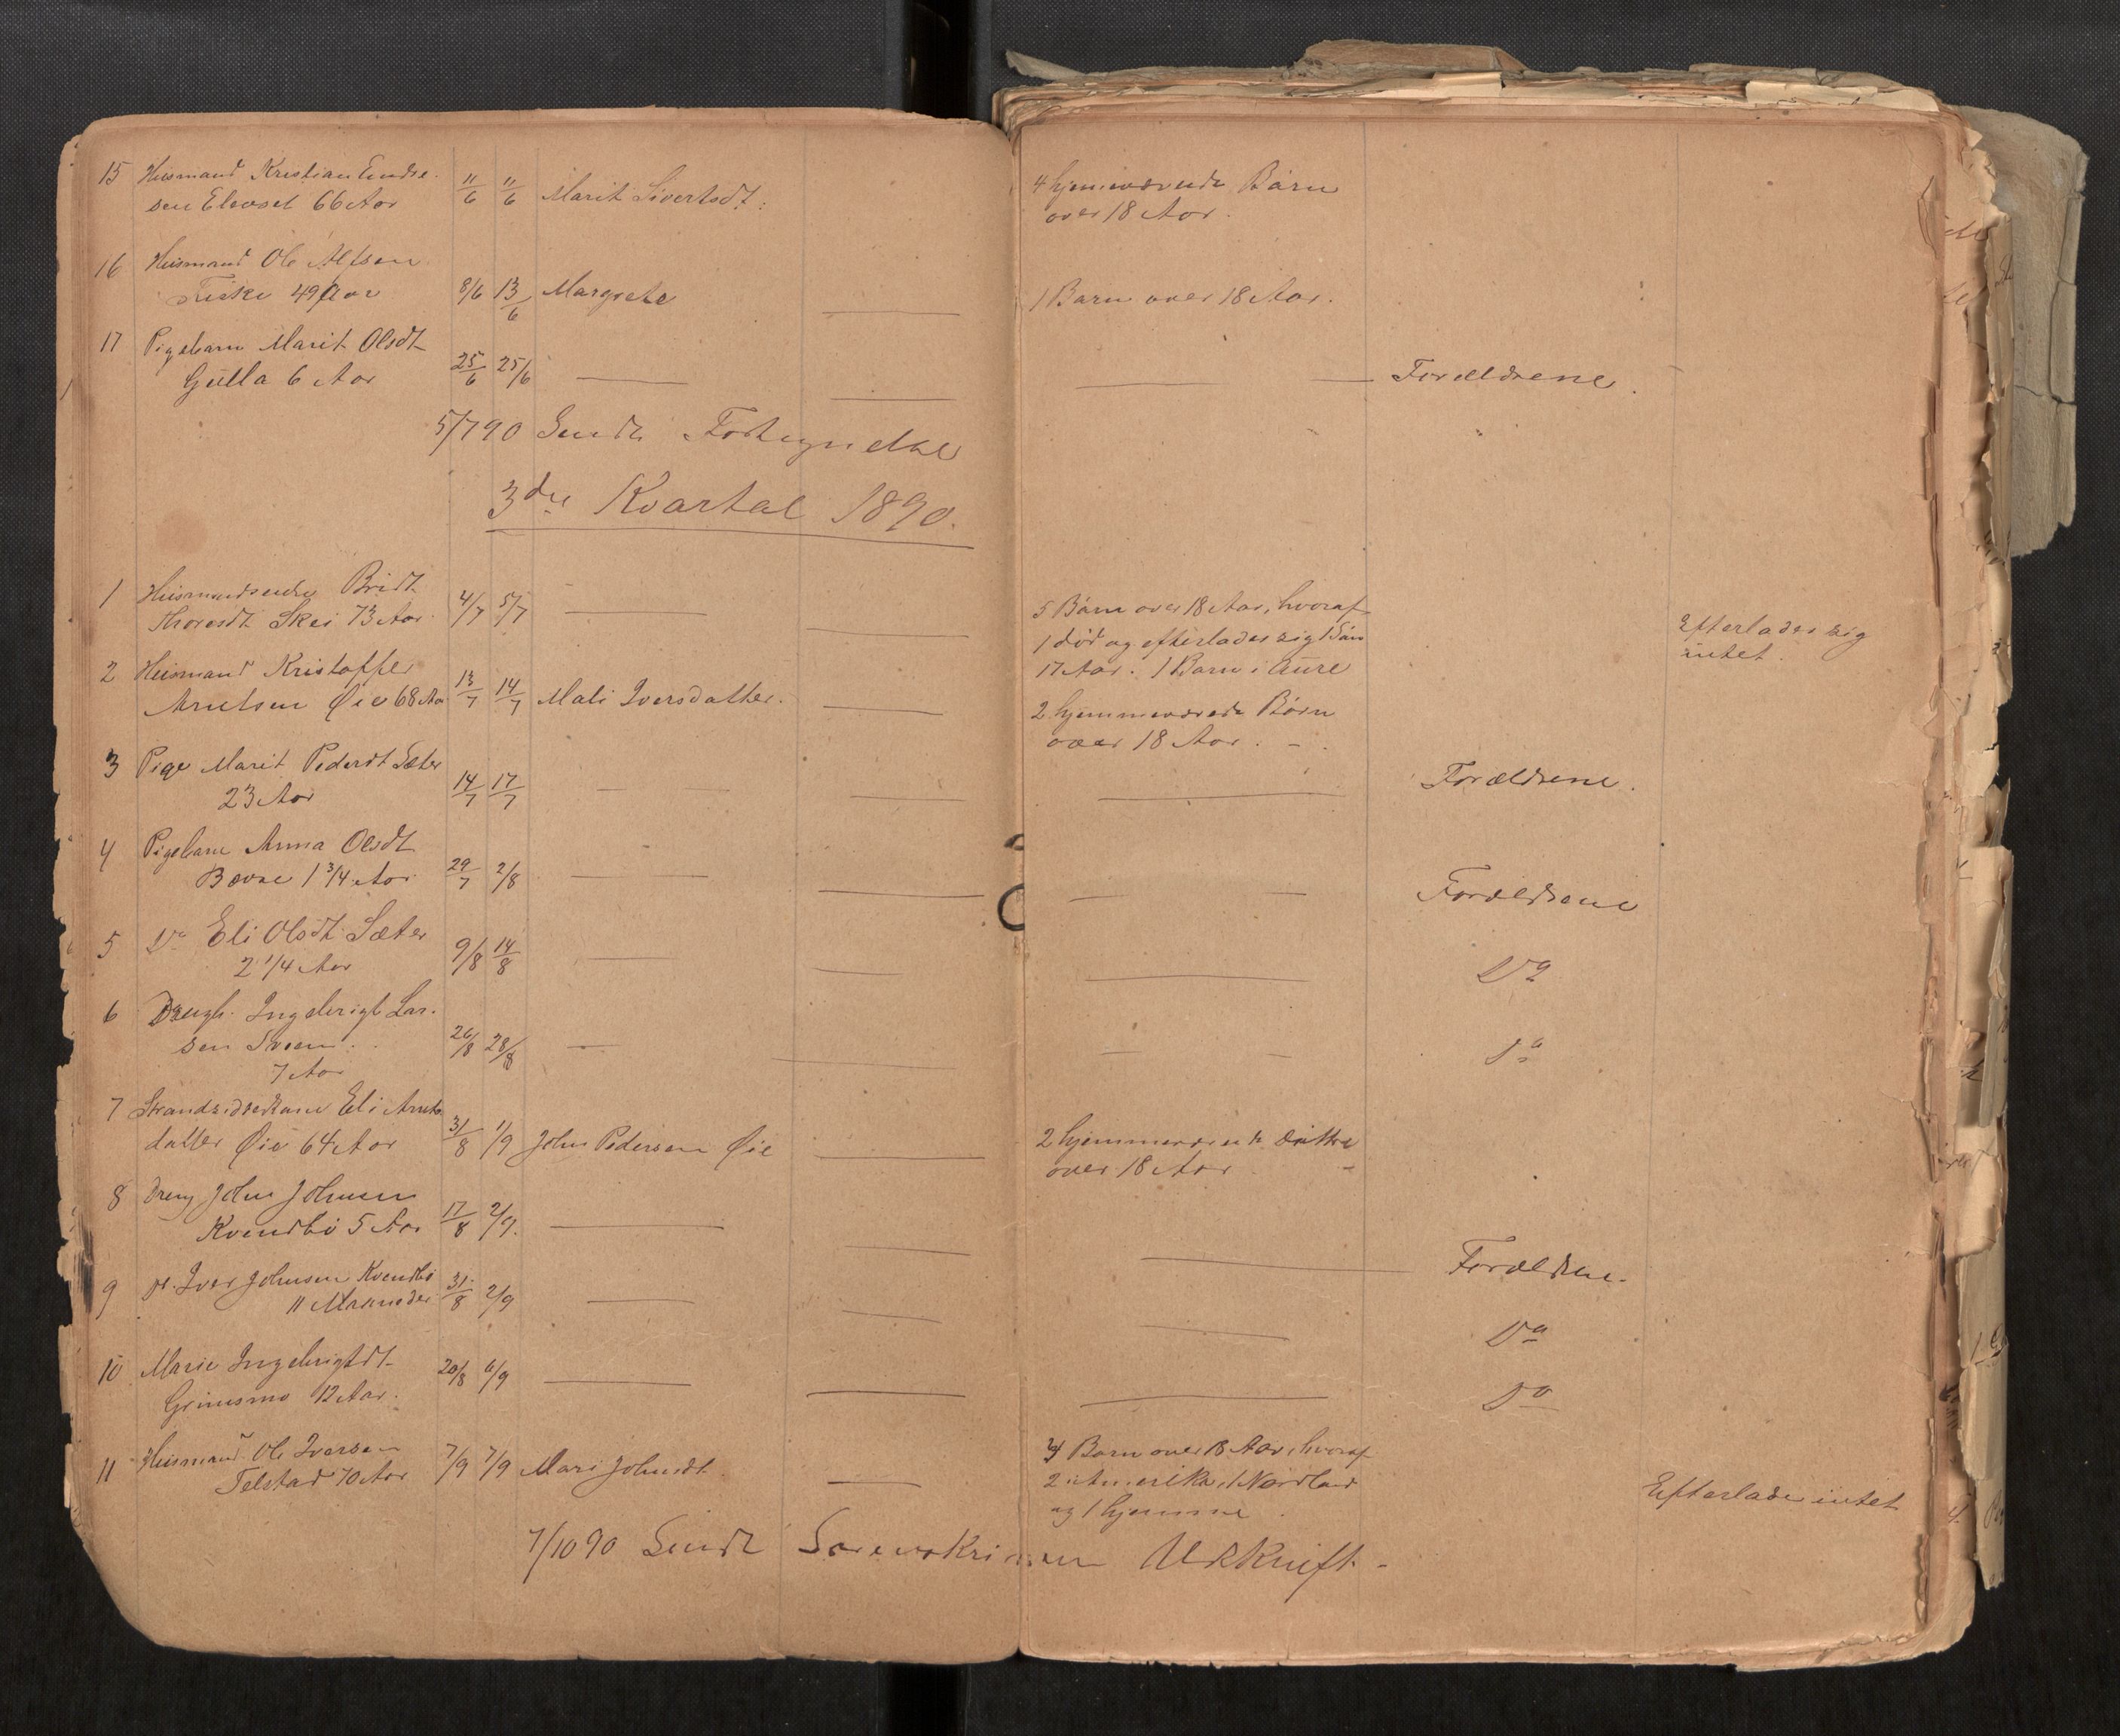 15 Husmand Kristian Endre- 11/6 11/6 Marit Sivertsdt: 4 hjemmeværende Børn
sen Elevset 66 Aar over 18 Aar.
16 Husmand Ole Alfsen
Fiske 49 Aar 8/6 13/6 Margrete 1 Barn over 18 Aar.
17 Pigebarn Marit Olsdt
Gulla 6 Aar 25/6 25/6 Forældrene.
5/7 90 Sendt Fortegnelse
3die Kvartal 1890.
1 Husmandsenke Bridt 4/7 5/7 5 Børn over 18 Aar, hvoraf
Thoresdt Skei 73 Aar 1 død og efterlader sig 1 Søn Efterlader sig
17 Aar. 1 Barn i Aure intet.
2 Husmand Kristoffer
Arntsen Øie 68 Aar 13/7 14/7 Mali Iversdatter. 2 hjemmeværende Børn
over 18 Aar.
3 Pige Marit Pedersdt Sæter
23 Aar 14/7 17/7 Forældrene.
4 Pigebarn Anna Olsdt
Bævre 1 3/4 Aar 29/7 2/8 Forældrene
5 Do Eli Olsdt Sæter
2 1/4 Aar 9/8 14/8 Do
6 Drengb. Ingebrigt Lar-
sen Sveen. 26/8 28/8 Do
7 Aar
7 Strandsidderkone Eli Arnts-
datter Øie 64 Aar 31/8 1/9 John Pedersen Øie 2 hjemmeværende Døttre
over 18 Aar
8 Dreng John Johnsen
Kvendbø 5 Aar 17/8 2/9. Forældrene.
9 Do. Iver Johnsen Kvendbø
11 Maaneder 31/8 2/9 Do
10 Marie Ingebrigtdt
Grinsmo 12 Aar. 20/8 6/9 Do
11 Husmand Ole Iversen 7/9 7/9 Mari Johnsdt 4 Børn over 18 Aar, hvoraf
Telstad 70 Aar 2 i Amerika, 1 Nordland Efterlader intet
og 1 hjemme.
7/10 90 Sendt Sorenskriveren Udskrift.